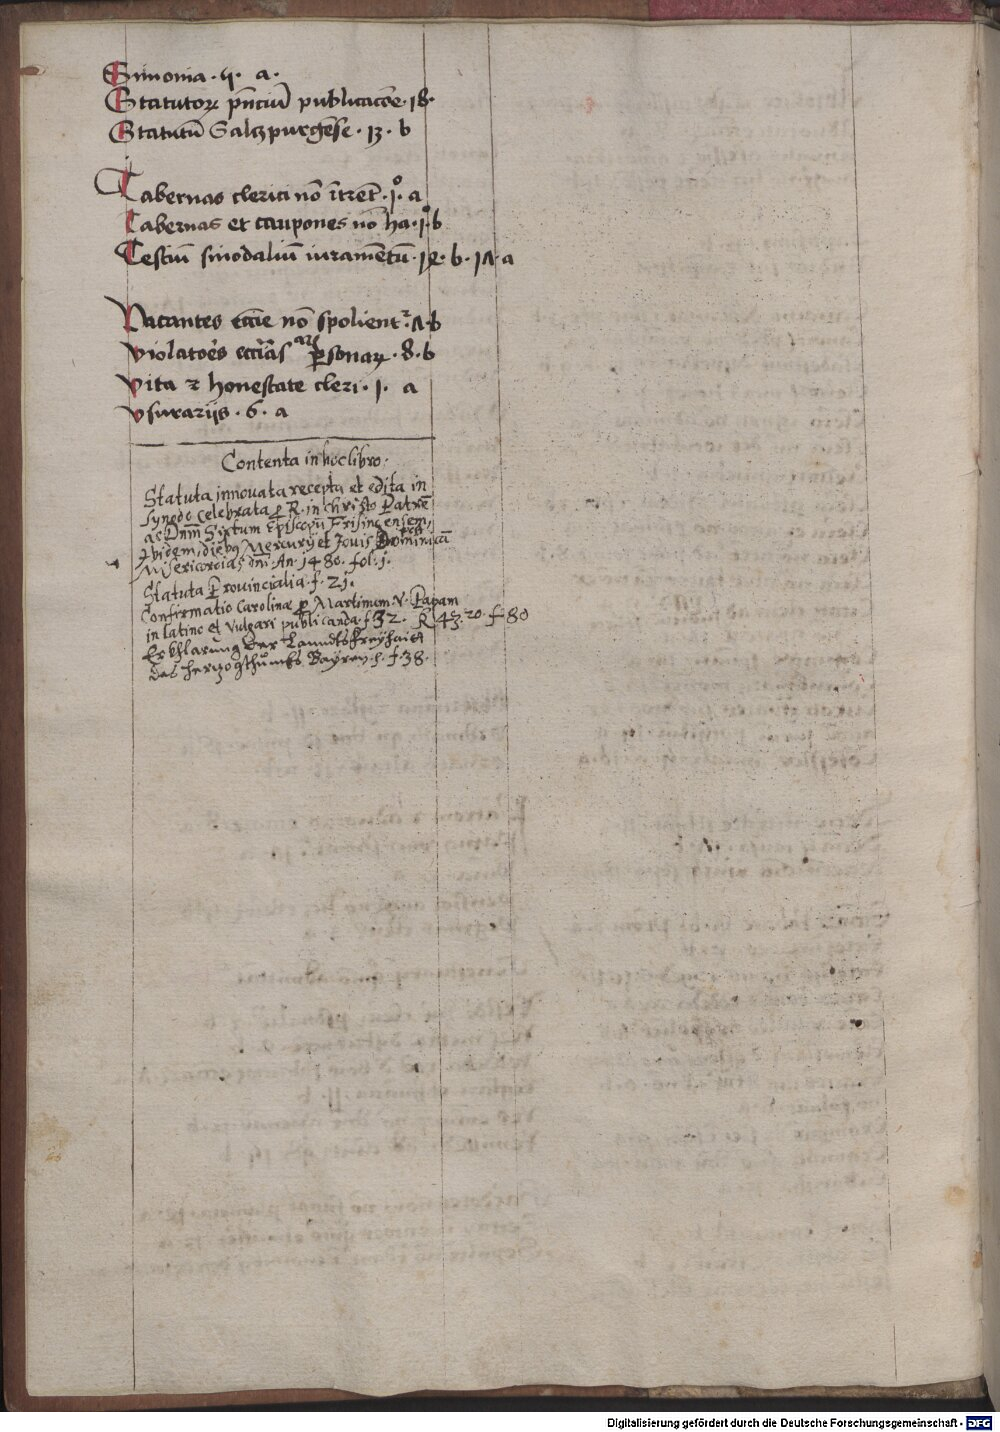 Simonia · 4 · a ·
Statutoꝝ pn̄ciū publicacōe · 18 ·
Statutū Salczpurgēse · 13 · b
Tabernas clerici nō ītrēt · 1º · a
Tabernas et caupones nō ha · 1º b
Testiū sinodaliū iuramētū · 12 · b · 17 · a
Vacantes eccīe nō spolient᷑ · 7 · b
violatōes ecclīas ꝑsonaꝝ · 8 · b
Vita ⁊ honestate cleri · 1 · a
vsurariis · 6 · a
Contenta in hoc libro ·
Statuta innouata recepta et edita in
Synodo celebrata ꝑ R. in christo Patrē
ac Dnm̄ Sixtum Episcopū Frisingensem,
Ibidem, diebꝫ Mercurij et Jouis post Dominicā
Misericordias dnī · An · 1480 · fol: j ·
Statuta Prouincialia · f · 21 ·
Confirmatio Carolinæ ꝑ Martinum V · Papam
in latino et vulgari publicanda · f 32 · K 43 · 20 · f · 80
Erkhlärung der Lanndtsfreyhait
des herzogthumbs Bayrn · f · 38 ·
Digitalisierung gefördert durch die Deutsche Forschungsgemeinschaft - DFG